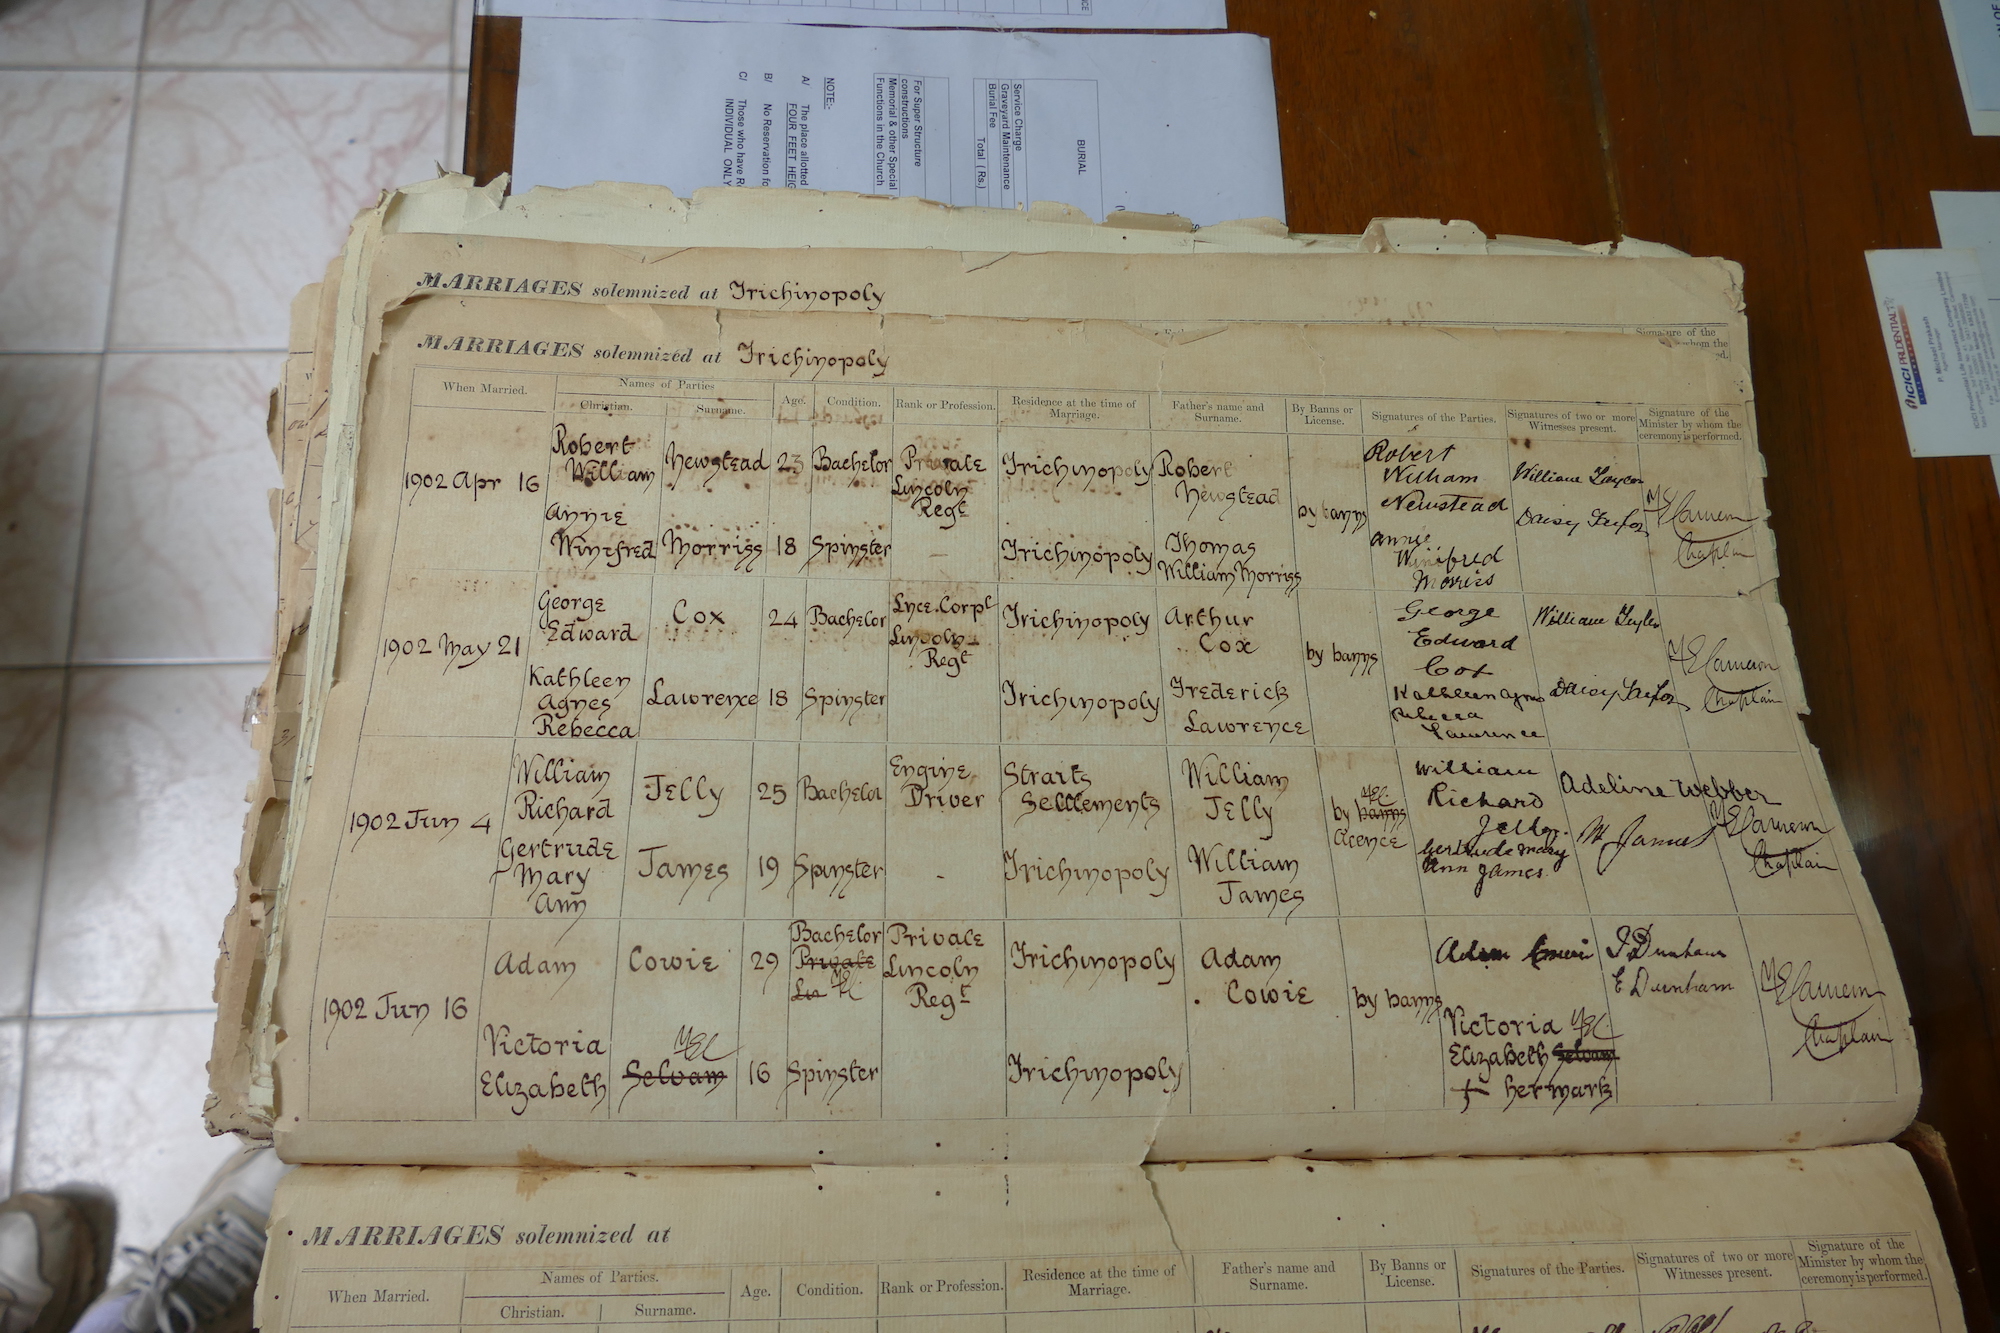 BURIAL
Service Charge
Graveyard Maintenance
Burial Fee Total ( Rs.)
For Super Structure
constructions
Memorial & other Special
Functions in the Church
NOTE:-
A/ The place allotted
FOUR FEET HEIG
B/ No Reservation fo
C/ Those who have R
INDIVIDUAL ONLY
ICICI PRUDENTIAL
P. Michael Prakash
MARRIAGES solemnized at Trichinopoly
Signature of the
whom the
MARRIAGES solemnized at Trichinopoly
When Married. Names of Parties Christian. Surname. Age. Condition. Rank or Profession. Residence at the time of Marriage. Father's name and Surname. By Banns or License. Signatures of the Parties. Signatures of two or more Witnesses present. Signature of the Minister by whom the ceremony is performed.
1902 Apr 16 Robert William Newstead 23 Bachelor Private Lincoln Regt Trichinopoly Robert Newstead by banns Robert William Newstead William Taylor
Annie Winifred Morriss 18 Spinster — Trichinopoly Thomas William Morriss Annie Winifred Morriss Daisy Taylor Chaplain
1902 May 21 George Edward Cox 24 Bachelor Lnce. Corpl Lincoln Regt Trichinopoly Arthur Cox by banns George Edward Cox William Taylor M E Cameron
Kathleen Agnes Rebecca Lawrence 18 Spinster Trichinopoly Frederick Lawrence Kathleen Agnes Rebecca Lawrence Daisy Taylor Chaplain
1902 Jun 4 William Richard Jelly 25 Bachelor Engine Driver Straits Settlements William Jelly by banns MEC licence William Richard Jelly. Adeline Webber M E Cameron
Gertrude Mary Ann James 19 Spinster - Trichinopoly William James Gertrude Mary Ann James. W James Chaplain
1902 Jun 16 Adam Cowie 29 Bachelor Private Lin MEC Private Lincoln Regt Trichinopoly Adam Cowie by banns Adam Cowie J Durnham E Durnham M E Cameron
Victoria Elizabeth Selvam MEC 16 Spinster Trichinopoly Victoria Elizabeth Selvam MEC + her mark Chaplain
MARRIAGES solemnized at
When Married. Names of Parties. Christian. Surname. Age. Condition. Rank or Profession. Residence at the time of Marriage. Father's name and Surname. By Banns or License. Signatures of the Parties. Signatures of two or more Witnesses present. Signature of the Minister by whom the ceremony is performed.